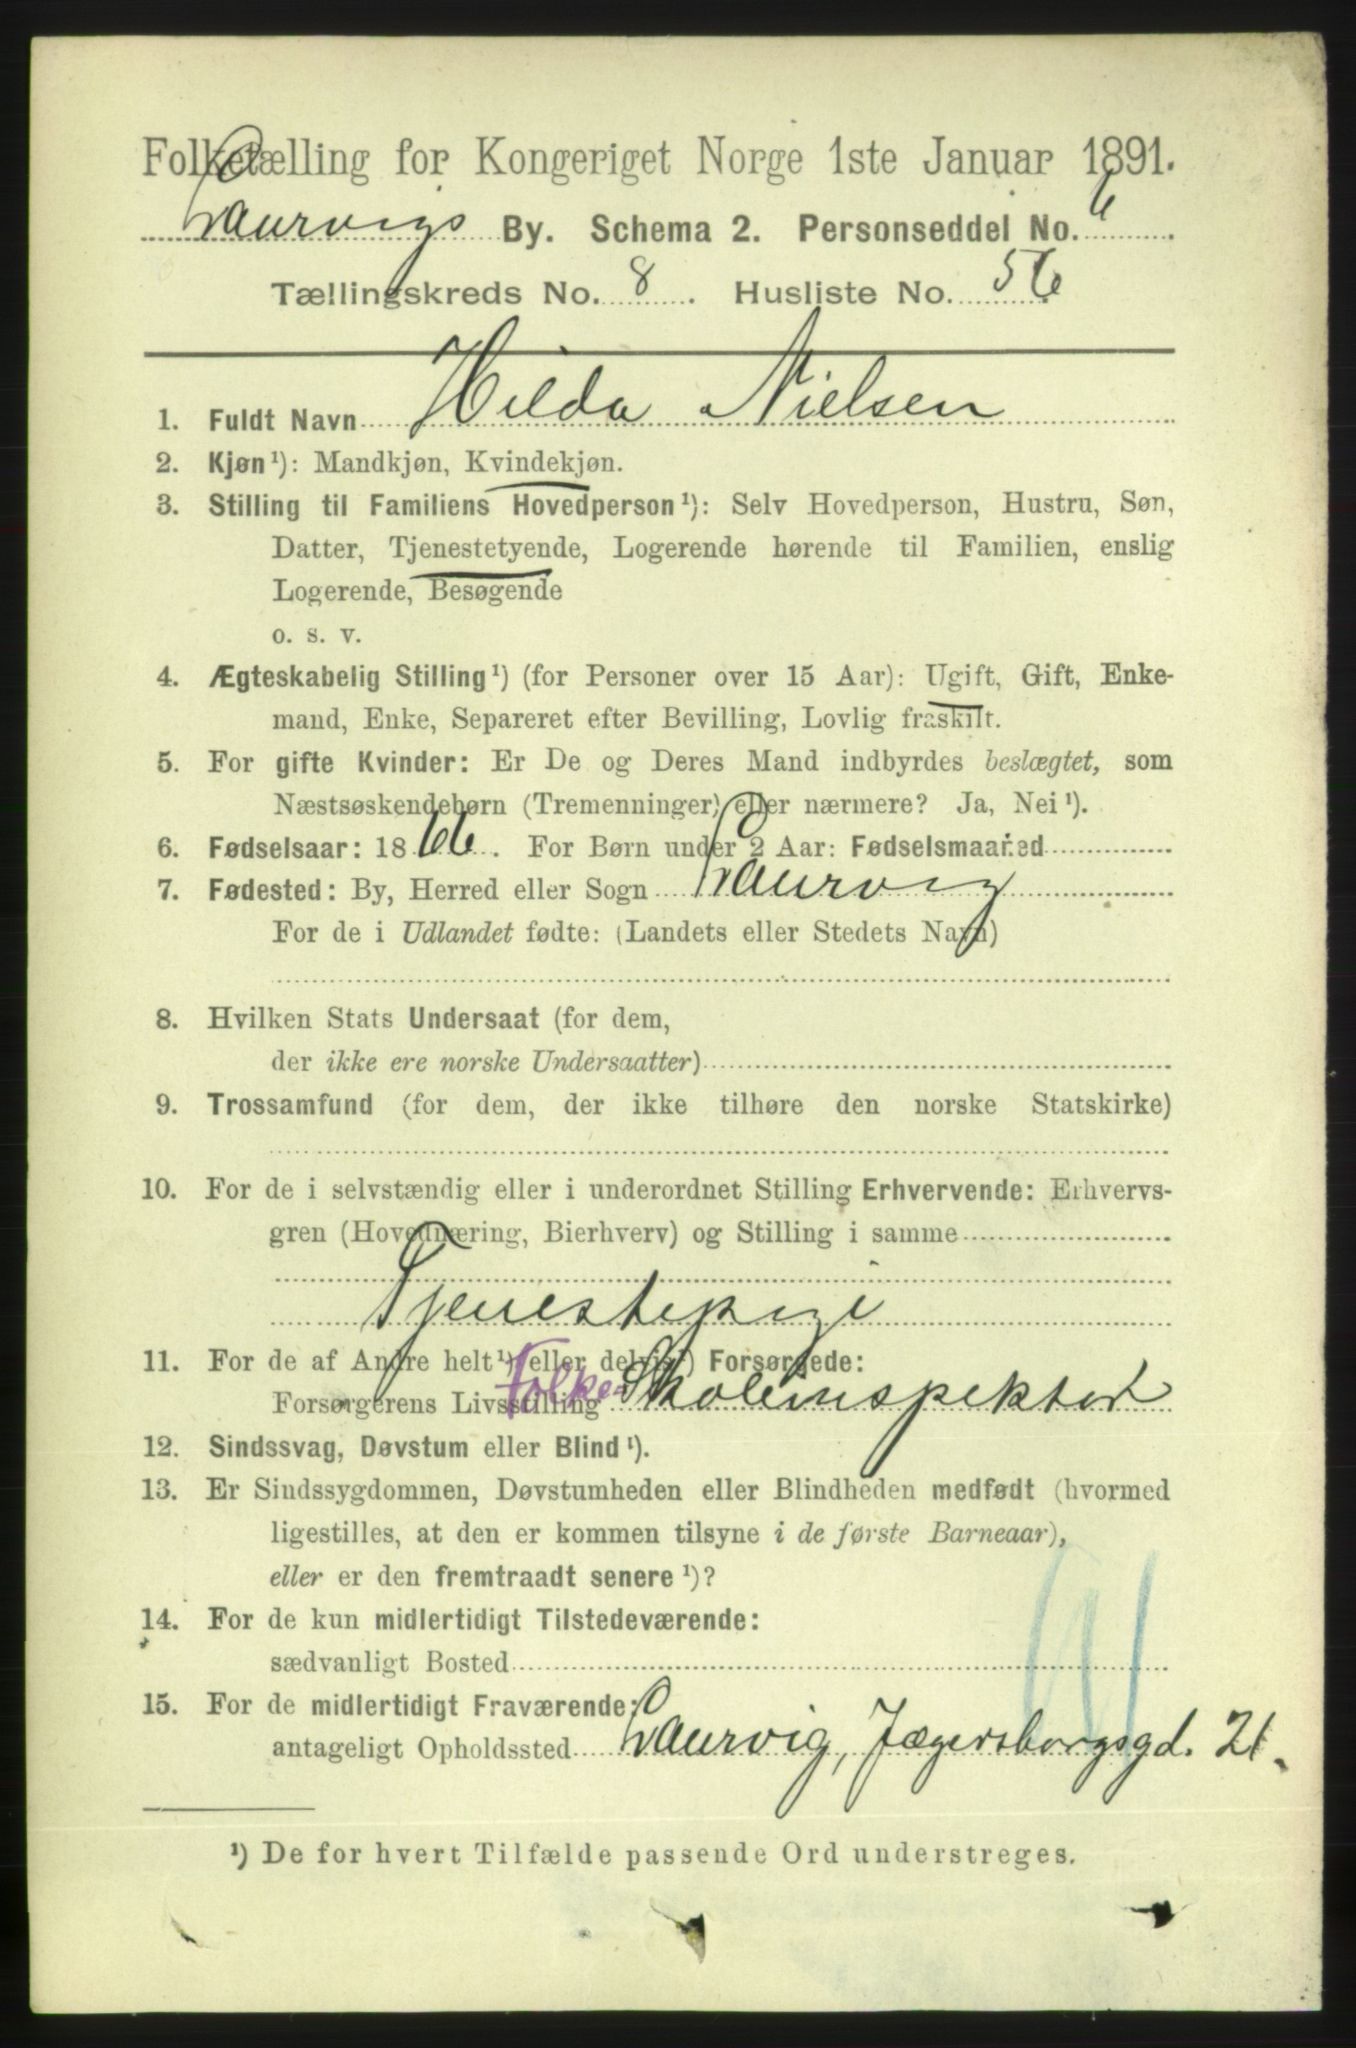 Folketælling for Kongeriget Norge 1ste Januar 1891.
Laurvigs By. Schema 2. Personseddel No. 6.
Tællingskreds No. 8. Husliste No. 56
1. Fuldt Navn Hilda Nielsen
2. Kjøn ¹): Mandkjøn, Kvindekjøn.
3. Stilling til Familiens Hovedperson ¹): Selv Hovedperson, Hustru, Søn,
Datter, Tjenestetyende, Logerende hørende til Familien, enslig
Logerende, Besøgende
o. s. v.
4. Ægteskabelig Stilling ¹) (for Personer over 15 Aar): Ugift, Gift, Enke-
mand, Enke, Separeret efter Bevilling, Lovlig fraskilt.
5. For gifte Kvinder: Er De og Deres Mand indbyrdes beslægtet, som
Næstsøskendebørn (Tremenninger) eller nærmere? Ja, Nei ¹).
6. Fødselsaar: 1866. For Børn under 2 Aar: Fødselsmaaned
7. Fødested: By, Herred eller Sogn Laurvig
For de i Udlandet fødte: (Landets eller Stedets Navn)
8. Hvilken Stats Undersaat (for dem,
der ikke ere norske Undersaatter)
9. Trossamfund (for dem, der ikke tilhøre den norske Statskirke)
10. For de i selvstændig eller i underordnet Stilling Erhvervende: Erhvervs-
gren (Hovednæring, Bierhverv) og Stilling i samme
Tjenestepige
11. For de af Andre helt ¹) eller delvis ¹) Forsørgede:
Forsørgerens Livsstilling Folke-Skoleinspektør
12. Sindssvag, Døvstum eller Blind ¹).
13. Er Sindssygdommen, Døvstumheden eller Blindheden medfødt (hvormed
ligestilles, at den er kommen tilsyne i de første Barneaar),
eller er den fremtraadt senere ¹)?
14. For de kun midlertidigt Tilstedeværende:
sædvanligt Bosted
15. For de midlertidigt Fraværende:
antageligt Opholdssted Laurvig, Jægersborgsgd. 21.
¹) De for hvert Tilfælde passende Ord understreges.